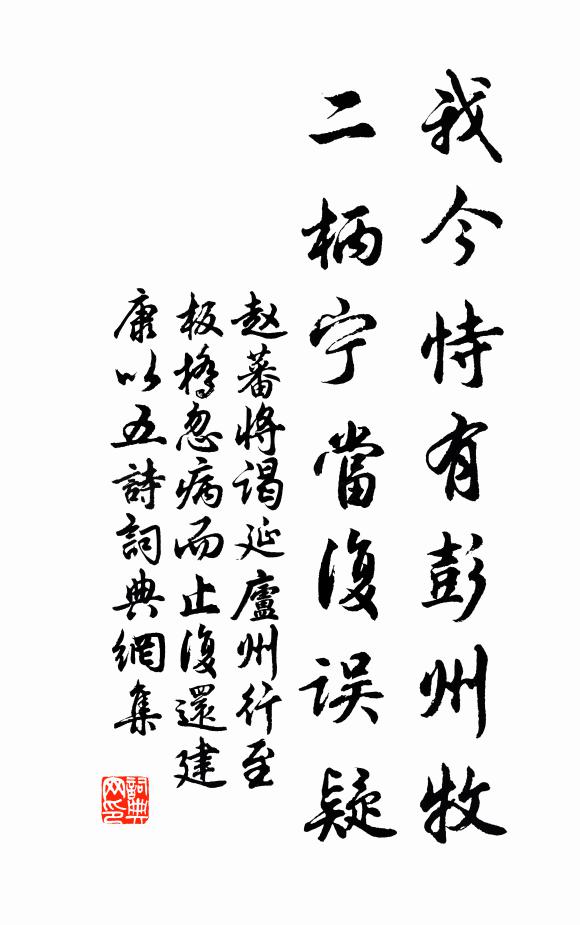 我今恃有彭州牧
二柄宁當復误疑
赵蕃将谒延廬州行至
板橋忽病而止復還建
康以五詩詞典網集
詞典网印